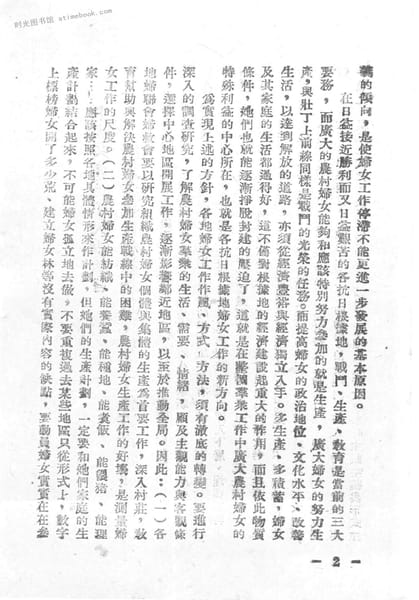 时光图书馆 atimebook.com
義的傾向，是使婦女工作停滯不能更進一步發展的基本原因。
在日益接近勝利而又日益艱苦的各抗日根據地，戰鬥、生產、教育是當前的三大
要務，而廣大的農村婦女能夠和應該特別努力參加的就是生產，廣大婦女的努力生
產，與壯丁上前線同樣是戰鬥的光榮的任務。而提高婦女的政治地位、文化水平、改善
生活，以達到解放的道路，亦須從經濟豐裕與經濟獨立入手。多生產，多積蓄，婦女
及其家庭的生活都過得好，這不僅對根據地的經濟建設起重大的作用，而且依此物質
條件，她們也就能逐漸掙脫封建的壓迫了，這就是在整個羣衆工作中廣大農村婦女的
特殊利益的中心所在，也就是各抗日根據地婦女工作的新方向。
爲實現上述的方針，各地婦女工作作風、方式、方法，須有澈底的轉變。要進行
深入的調查研究，了解農村婦女羣衆的生活、需要、情緒，顧及主觀能力與客觀條
件，選擇中心地區開展工作，逐漸影響鄰近地區，以至於推動全局。因此：（一）各
地婦聯會婦救會要以研究組織農村婦女個體與集體的生產爲首要工作，深入村莊，教
育幫助與解決農村婦女參加生產戰線中的困難，農村婦女生產工作的好壞，是測量婦
女工作的尺度。（二）農村婦女能紡織、能養蠶、能種地、能煮飯、能餵豬、能理
家……應該按照各地具體情形來作計劃，但她們的生產計劃，一定要和她們家庭的生
產計劃結合起來，不可能婦女孤立地去做，不要重複過去某些地區只從形式上，數字
上標榜婦女開了多少荒、建立婦女林等沒有實際內容的缺點，要動員婦女實實在在參
— 2 —